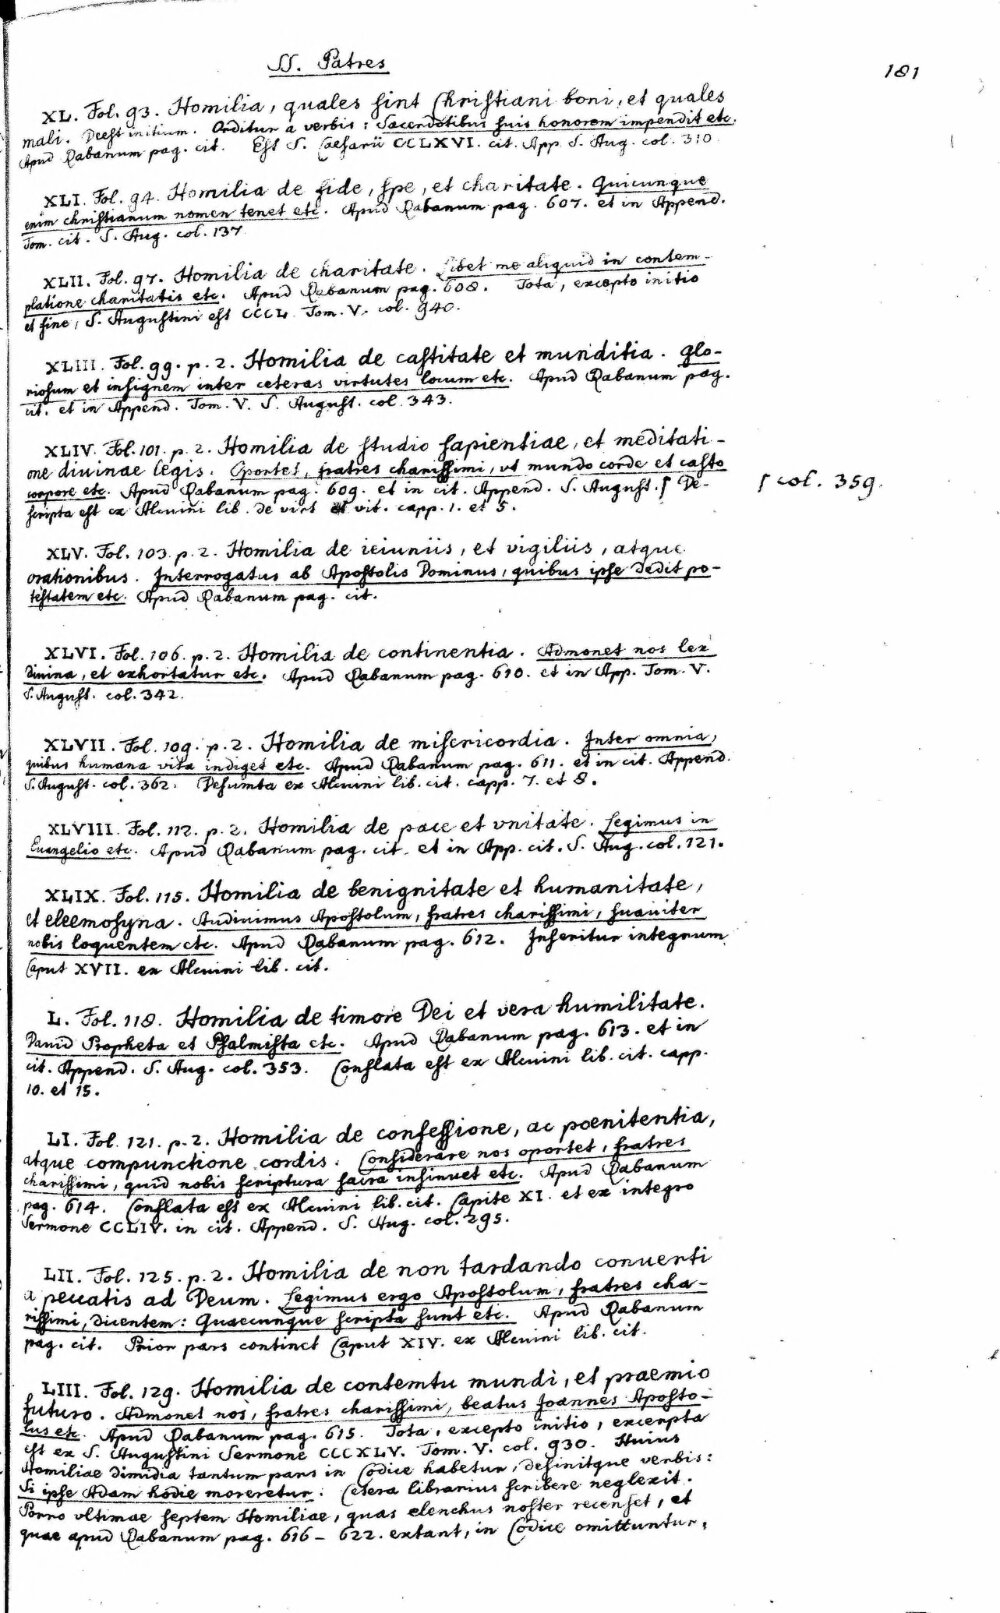 SS. Patres
181
XL. Fol. 93. Homilia, quales sint Christiani boni, et quales
mali. Deest initium. Orditur a verbis: Sacerdotibus suis honorem impendit etc.
Apud Rabanum pag. cit. Est S. Caesarii CCLXVI. cit. App. S. Aug. col. 310.
XLI. Fol. 94. Homilia de fide, spe, et charitate. Quicunque
enim christianum nomen tenet etc. Apud Rabanum pag. 607. et in Append.
Tom. cit. S. Aug. col. 137.
XLII. Fol. 97. Homilia de charitate. Libet me aliquid in contem-
platione charitatis etc. Apud Rabanum pag. 608. Tota, excepto initio
et fine, S. Augustini est CCCL. Tom. V. col. 940.
XLIII. Fol. 99. p. 2. Homilia de castitate et munditia. Glo-
riosum et insignem inter ceteras virtutes locum etc. Apud Rabanum pag.
cit. et in Append. Tom. V. S. August. col. 343.
XLIV. Fol. 101. p. 2. Homilia de studio sapientiae, et meditati-
one divinae legis. Oportet, fratres charissimi, vt mundo corde et casto
corpore etc. Apud Rabanum pag. 609. et in cit. Append. S. August. ſ De-
ſ col. 359.
scripta est ex Alcuini lib. de virt et vit. capp. 1. et 5.
XLV. Fol. 103. p. 2. Homilia de ieiuniis, et vigiliis, atque
orationibus. Interrogatus ab Apostolis Dominus, quibus ipse dedit po-
testatem etc. Apud Rabanum pag. cit.
XLVI. Fol. 106. p. 2. Homilia de continentia. Admonet nos lex
divina, et exhortatur etc. Apud Rabanum pag. 610. et in App. Tom. V.
S. August. col. 342.
XLVII. Fol. 109. p. 2. Homilia de misericordia. Inter omnia,
quibus humana vita indiget etc. Apud Rabanum pag. 611. et in cit. Append.
S. August. col. 362. Desumta ex Alcuini lib. cit. capp. 7. et 8.
XLVIII. Fol. 112. p. 2. Homilia de pace et vnitate. Legimus in
Euangelio etc. Apud Rabanum pag. cit. et in App. cit. S. Aug. col. 121.
XLIX. Fol. 115. Homilia de benignitate et humanitate,
et eleemosyna. Audivimus Apostolum, fratres charissimi, suaviter
nobis loquentem etc. Apud Rabanum pag. 612. Inseritur integrum
Caput XVII. ex Alcuini lib. cit.
L. Fol. 118. Homilia de timore Dei et vera humilitate.
David Propheta et Psalmista etc. Apud Rabanum pag. 613. et in
cit. Append. S. Aug. col. 353. Conflata est ex Alcuini lib. cit. capp.
10. et 15.
LI. Fol. 121. p. 2. Homilia de confessione, ac poenitentia,
atque compunctione cordis. Considerare nos oportet, fratres
charissimi, quid nobis scriptura sacra insinuet etc. Apud Rabanum
pag. 614. Conflata est ex Alcuini lib. cit. Capite XI. et ex integro
Sermone CCLIV. in cit. Append. S. Aug. col. 295.
LII. Fol. 125. p. 2. Homilia de non tardando conuerti
a peccatis ad Deum. Legimus ergo Apostolum, fratres cha-
rissimi, dicentem: Quaecunque scripta sunt etc. Apud Rabanum
pag. cit. Prior pars continet Caput XIV. ex Alcuini lib. cit.
LIII. Fol. 129. Homilia de contemtu mundi, et praemio
futuro. Admonet nos, fratres charissimi, beatus Joannes Aposto-
lus etc. Apud Rabanum pag. 615. Tota, excepto initio, excerpta
est ex S. Augustini Sermone CCCXLV. Tom. V. col. 930. Huius
Homiliae dimidia tantum pars in Codice habetur, definitque verbis:
Si ipse Adam hodie moreretur. Cetera librarius scribere neglexit.
Porro vltimae septem Homiliae, quas elenchus noster recenset, et
quae apud Rabanum pag. 616 - 622. extant, in Codice omittuntur.